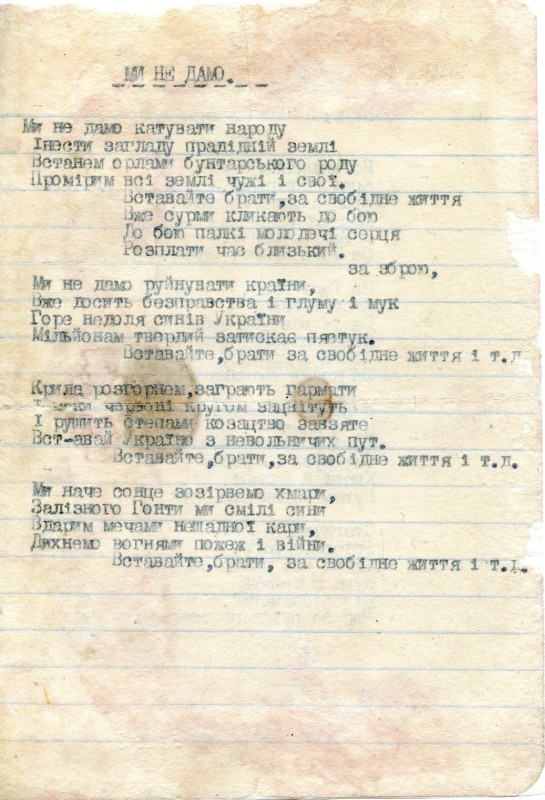 МИ НЕ ДАМО.
Ми не дамо катувати народу
Інести загладу прадідній землі
Встанем орлами бунтарського роду
Промірим всі землі чужі і свої.
Вставайте брати,за свобідне життя
Вже сурми кликають до бою
До бою палкі молодечі серця
Розплати час близький.
за зброю,
Ми не дамо руйнувати країни,
Вже досить безправства і глуму і мук
Горе недоля синів України
Мільйонам твердий затискає пястук.
Вставайте,брати за свобідне життя і т.д
Крила розгорнем,заграють гармати
червоні кругом зацвітуть
І рушить степами козацтво завзяте
Вст-авай Україно з невольничих пут.
Вставайте,брати,за свобідне життя і т.д.
Ми наче сонце зозірвемо хмари,
Залізного Гонти ми смілі сини
Вдарим мечами нещадної кари,
Дихнемо вогнями пожеж і війни.
Вставайте,брати, за свобідне життя і т.д.